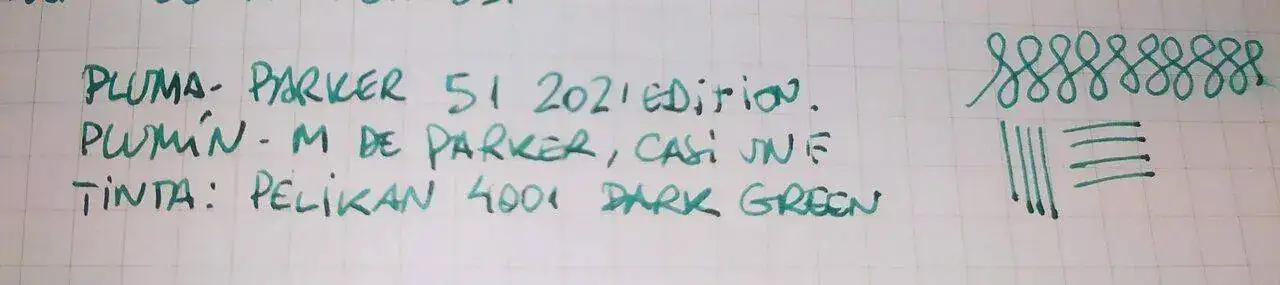 PLUMA- PARKER 51 2021 EDITION.
PLUMÍN - M DE PARKER, CASI UN F
TINTA: PELIKAN 4001 DARK GREEN